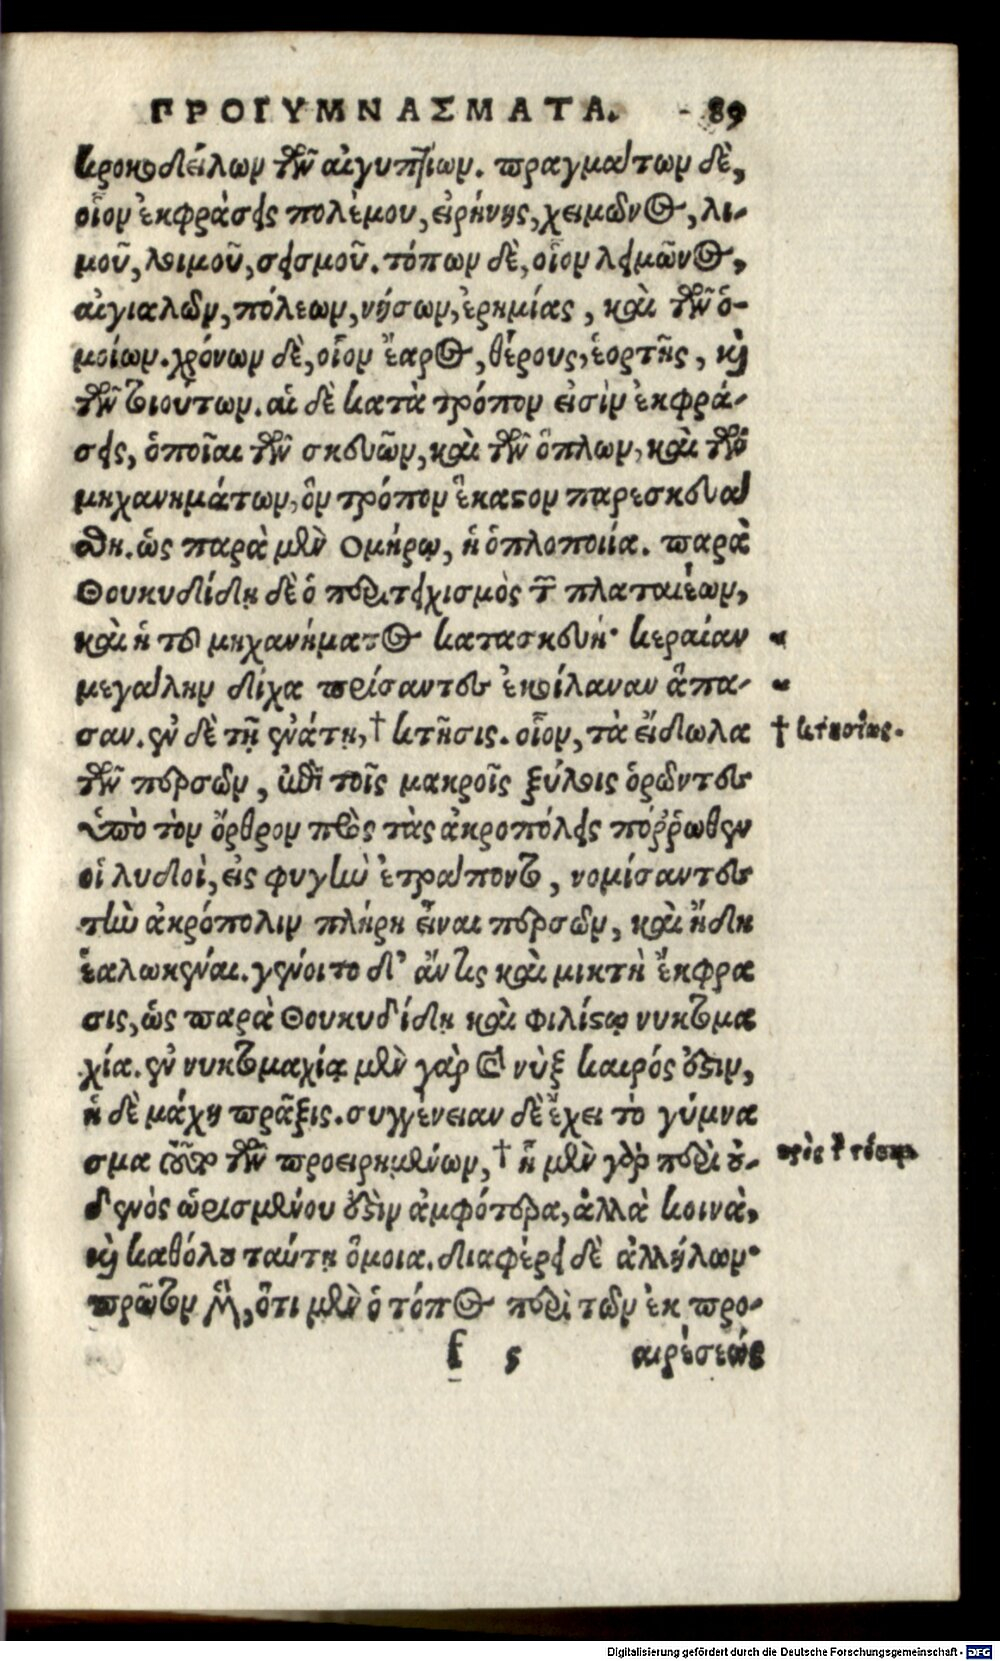 ΠΡΟΓΥΜΝΑΣΜΑΤΑ. 89
κροκοδείλων τῶν αἰγυπτίων. πραγμάτων δὲ,
οἷον ἐκφράσεις πολέμου, εἰρήνης, χειμῶνος, λι-
μοῦ, λοιμοῦ, σεισμοῦ. τόπων δὲ, οἷον λειμῶνος,
αἰγιαλῶν, πόλεων, νήσων, ἐρημίας, καὶ τῶν ὁ-
μοίων. χρόνων δὲ, οἷον ἔαρος, θέρους, ἑορτῆς, καὶ
τῶν τοιούτων. αἱ δὲ κατὰ τρόπον εἰσὶν ἐκφρά-
σεις, ὁποῖαι τῶν σκευῶν, καὶ τῶν ὅπλων, καὶ τῶν
μηχανημάτων, ὃν τρόπον ἕκαστον παρεσκευά
σθη. ὡς παρὰ μὲν Ομήρῳ, ἡ ὁπλοποιία. παρὰ
Θουκυδίδῃ δὲ ὁ περιτειχισμὸς τῶν πλαταιέων,
καὶ ἡ τοῦ μηχανήματος κατασκευή· κεραίαν "
μεγάλην δίχα πρίσαντες ἐκοίλαναν ἅπα- "
σαν. ἐν δὲ τῇ ἐνάτῃ, † κτῆσις. οἷον, τὰ εἴδωλα † κτησίας.
τῶν περσῶν, ἐπὶ τοῖς μακροῖς ξύλοις ὁρῶντες
ὑπὸ τὸν ὄρθρον πρὸς τὰς ἀκροπόλεις πόῤῥωθεν
οἱ λυδοὶ, εἰς φυγὴν ἐτράποντο, νομίσαντες
τὴν ἀκρόπολιν πλήρη εἶναι περσῶν, καὶ ἤδη
ἑαλωκέναι. γένοιτο δ' ἄν τις καὶ μικτὴ ἔκφρα
σις, ὡς παρὰ Θουκυδίδῃ καὶ Φιλίστῳ νυκτομα
χία. ἐν νυκτομαχίᾳ μὲν γὰρ ἡ νὺξ καιρός ἐστιν,
ἡ δὲ μάχη πρᾶξις. συγγένειαν δὲ ἔχει τὸ γύμνα
σμα τοῦτο τῶν προειρημένων, † ᾗ μὲν γὰρ περὶ οὐ- πρὸς τὸ τόπῳ
δενὸς ὡρισμένου ἐστὶν ἀμφότερα, ἀλλὰ κοινὰ,
καὶ καθόλου ταύτῃ ὅμοια. διαφέρει δὲ ἀλλήλων·
πρῶτον μὲν, ὅτι μὲν ὁ τόπος περὶ τῶν ἐκ προ-
f 5 αιρέσεώς
Digitalisierung gefördert durch die Deutsche Forschungsgemeinschaft - DFG